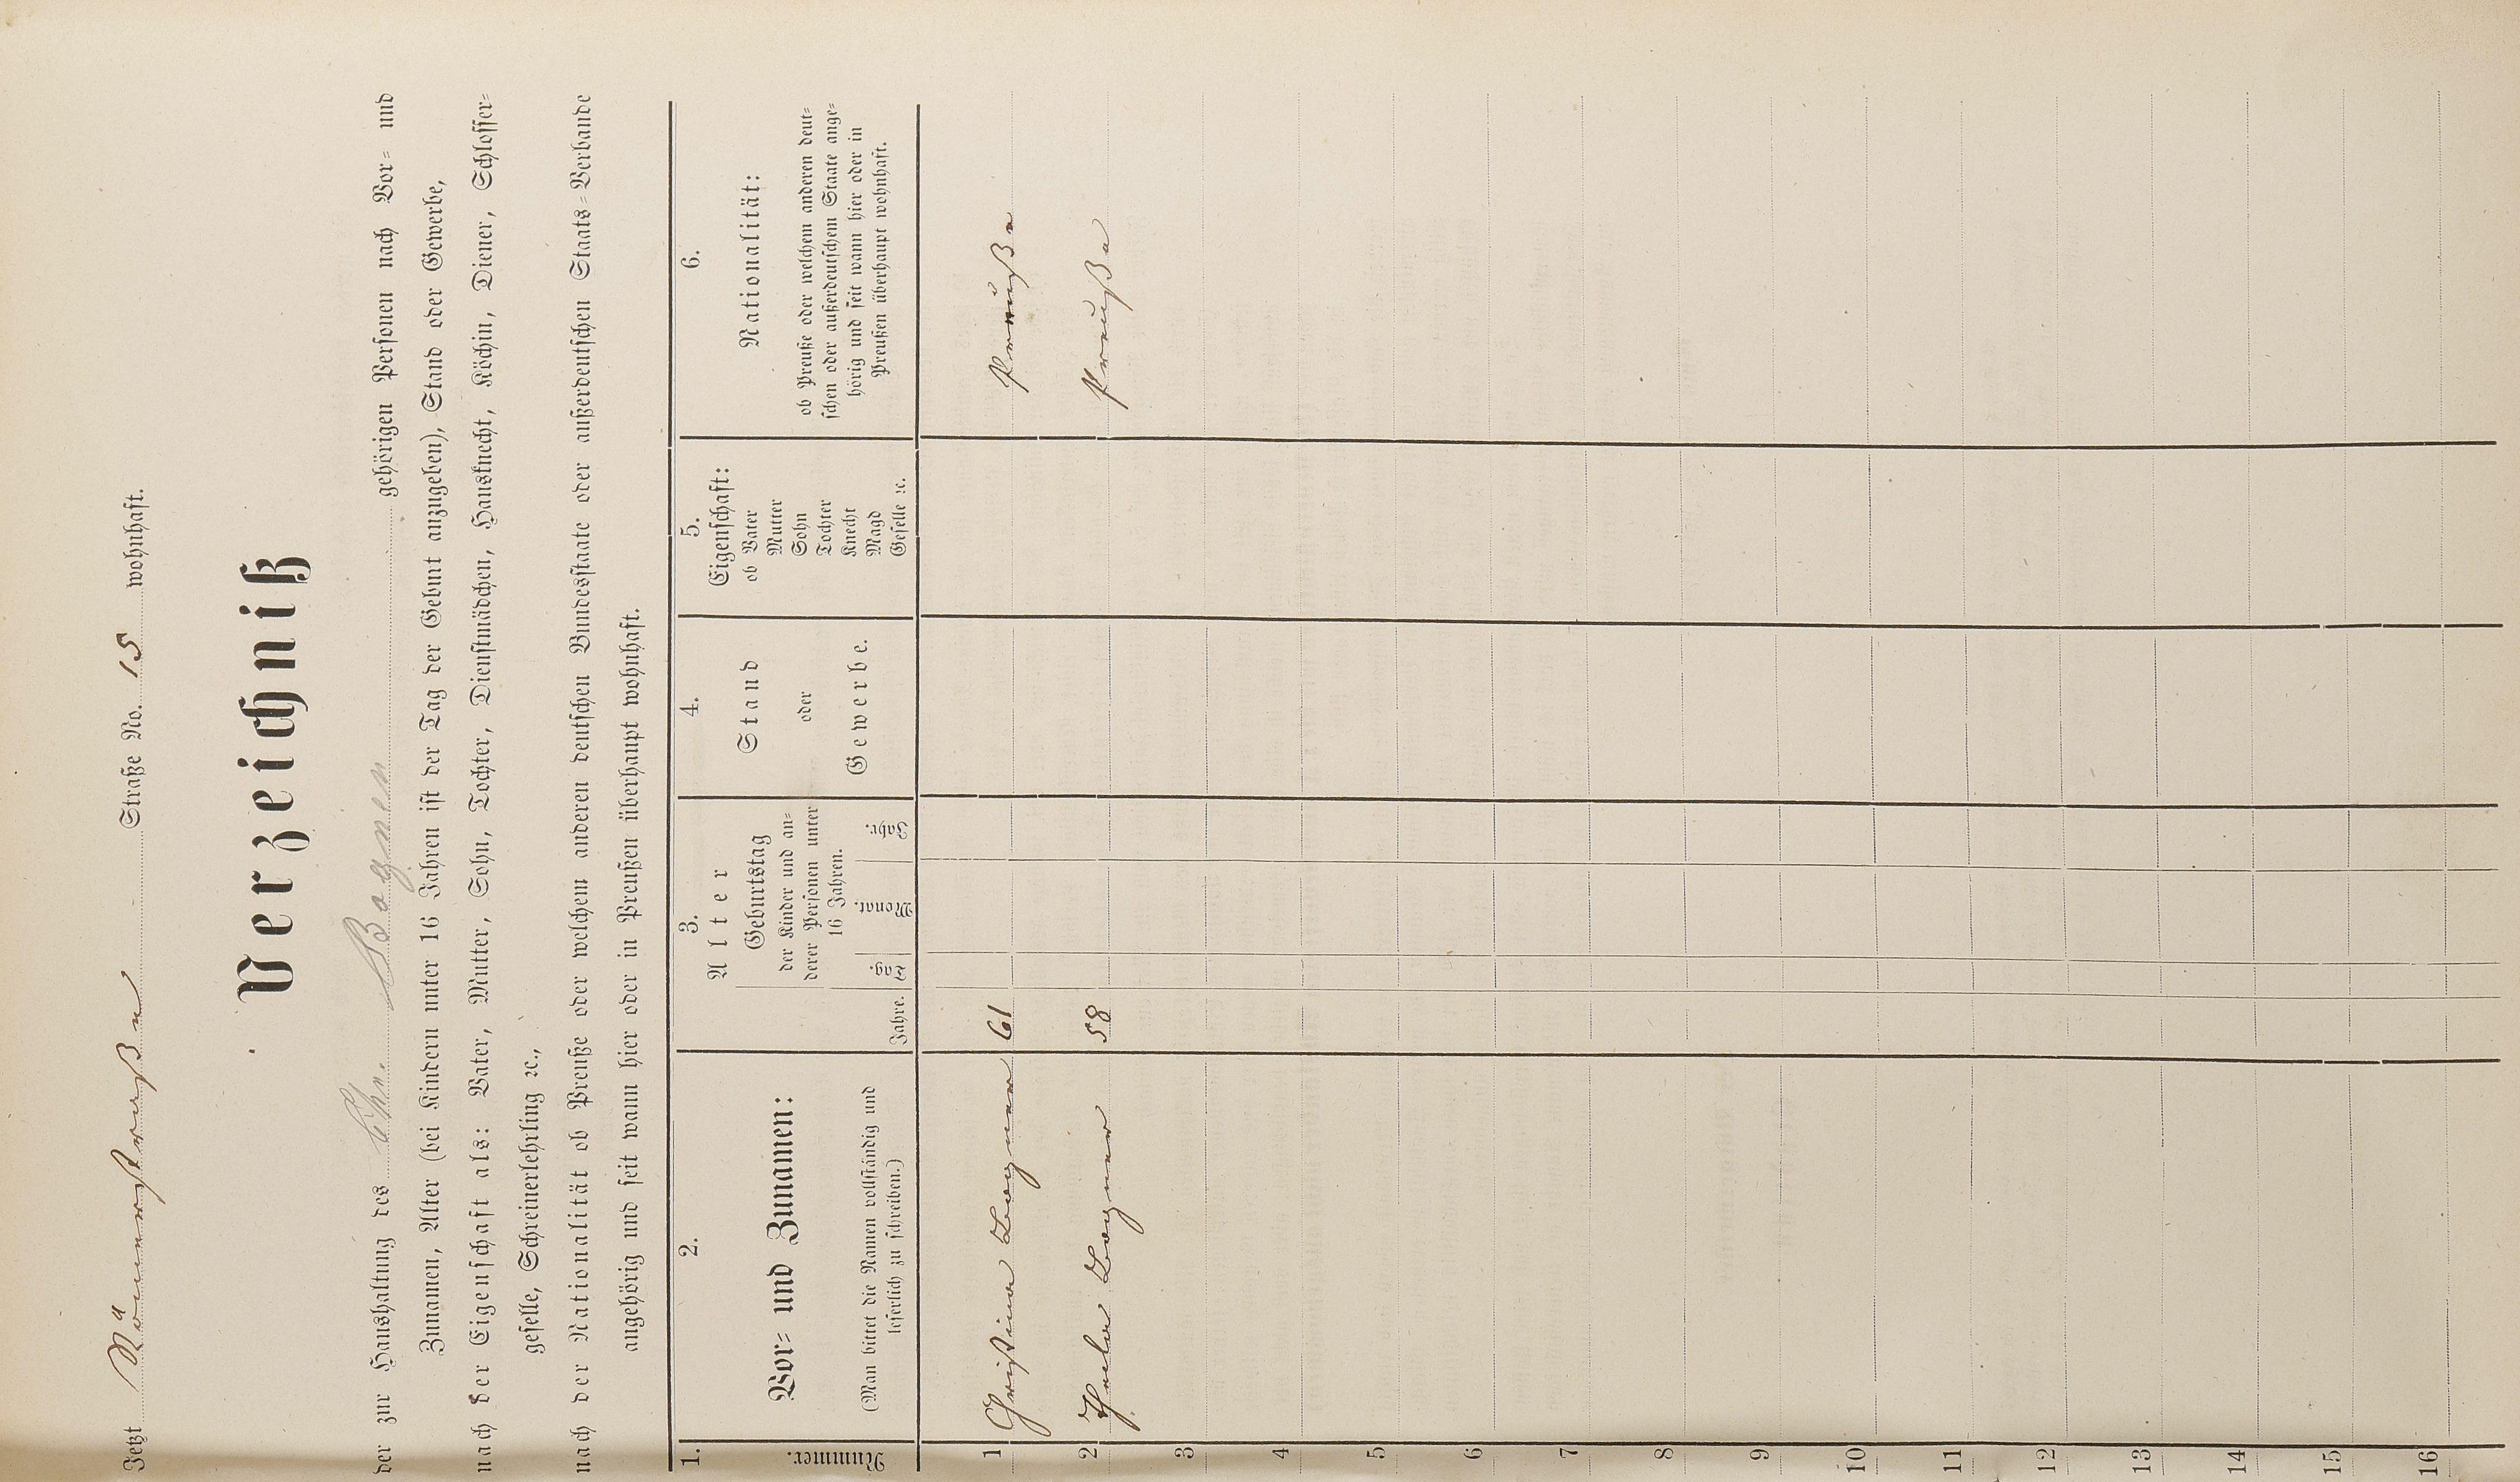 Jetzt Römerstraße Straße No. 15 wohnhaft.
Verzeichniß
der zur Haushaltung des Chr. Bogner gehörigen Personen nach Vor- und
Zunamen, Alter (bei Kindern unter 16 Jahren ist der Tag der Geburt anzugeben), Stand oder Gewerbe,
nach der Eigenschaft als: Vater, Mutter, Sohn, Tochter, Dienstmädchen, Hausknecht, Köchin, Diener, Schlosser-
geselle, Schreinerlehrling ꝛc.,
nach der Nationalität ob Preuße oder welchem anderen deutschen Bundesstaate oder außerdeutschen Staats-Verbande
angehörig und seit wann hier oder in Preußen überhaupt wohnhaft.
1.
Nummer.
2.
Vor- und Zunamen:
(Man bittet die Namen vollständig und
leserlich zu schreiben.)
3.
Alter
Jahre.
Geburtstag
der Kinder und an-
derer Personen unter
16 Jahren.
Tag.
Monat.
Jahr.
4.
Stand
oder
Gewerbe.
5.
Eigenschaft:
ob Vater
Mutter
Sohn
Tochter
Knecht
Magd
Geselle ꝛc.
6.
Nationalität:
ob Preuße oder welchem anderen deut-
schen oder außerdeutschen Staate ange-
hörig und seit wann hier oder in
Preußen überhaupt wohnhaft.
1 Christina Bogner 61 Preuße
2 Bogner 58 Preuße
3
4
5
6
7
8
9
10
11
12
13
14
15
16